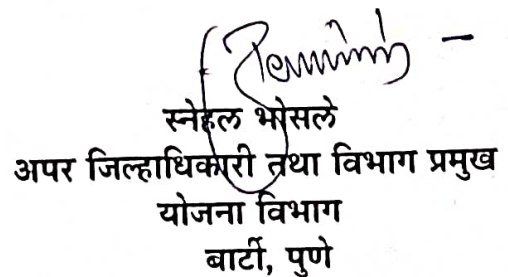 स्नेहल भोसले
अपर जिल्हाधिकारी तथा विभाग प्रमुख
योजना विभाग
बार्टी, पुणे